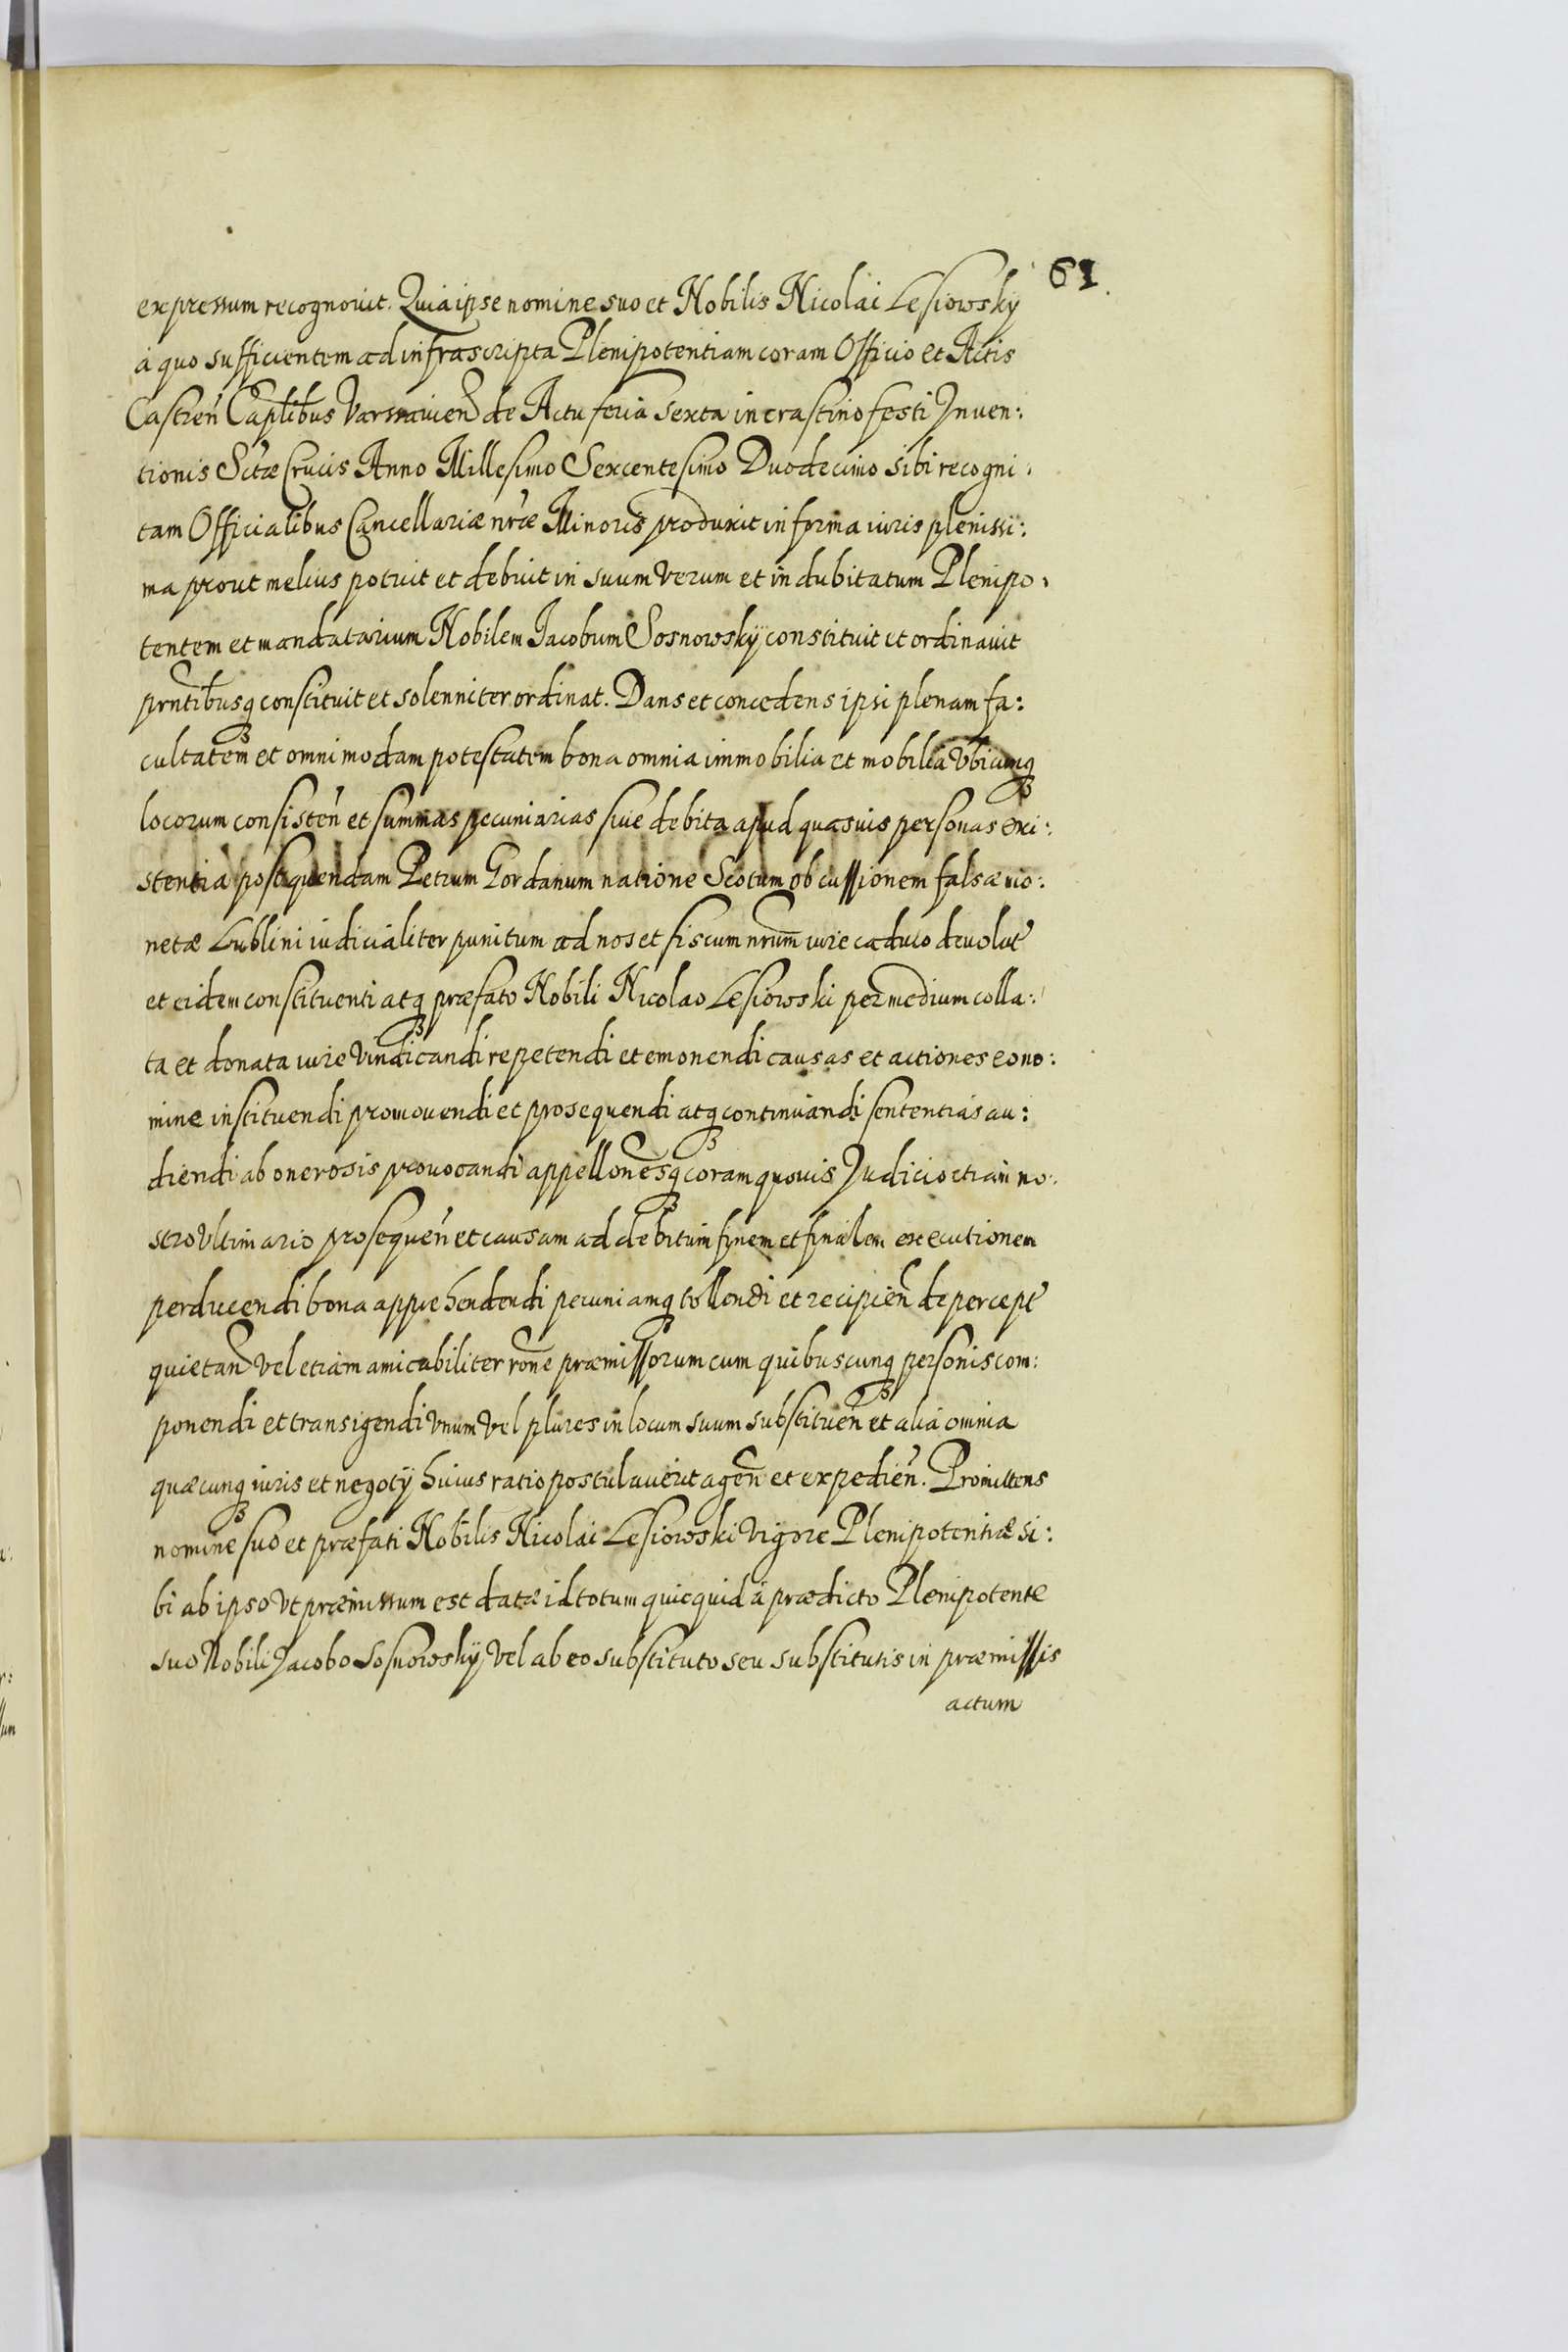 61.
expressum recognovit. Quia ipse nomine suo et Nobilis Nicolai Lesiowsky
à quo sufficientem ad infrascripta Plenipotentiam coram Officio et Actis
Castren̄ Capĺibus Varsavien̄ de Actu feria sexta in crastino festi Inven:
tionis Sctæ Crucis Anno Millesimo Sexcentesimo Duodecimo sibi recogni:
tam Officialibus Cancellariæ nr̄æ Minoris produxit in forma iuris plenissi:
ma prout melius potuit et debuit in suum verum et indubitatum Plenipo:
tentem et mandatarium Nobilem Jacobum Sosnowskÿ constituit et ordinavit
prn̄tibusq₃ constituit et solenniter ordinat. Dans et concedens ipsi plenam fa:
cultatem et omnimodam potestatem bona omnia immobilia et mobilia Ubicunq₃
locorum consisten̄ et summas pecuniarias sive debita apud quasvis personas exi:
stentia post quendam Petrum Gordanum natione Scotum ob cussionem falsæ mo:
netæ Lublini iudicialiter punitum ad nos et fiscum nr̄um iure caduco devolut̄
et eidem constituenti atq₃ præfato Nobili Nicolao Lesiowski per medium colla:
ta et donata iure Vindicandi repetendi et emonendi causas et actiones eo no:
mine instituendi promovendi et prosequendi atq₃ continuandi sententias au:
diendi ab onerosis provocandi appellon̄esq₃ coram quovis Judicio etiam no:
stro Ultimario prosequen̄ et causam ad debitum finem et finalem executionem
perducendi bona apprehendendi pecuniamq₃ tollendi et recipien̄ de percept̄
quietan̄ vel etiam amicabiliter ron̄e præmissorum cum quibuscunq₃ personis com:
ponendi et transigendi Unum Vel plures in locum suum substituen̄ et alia omnia
quæcunq₃ iuris et negotÿ huius ratio postulaverit agen̄ et expedien̄. Promittens
nomine suo et præfati Nobilis Nicolai Lesiowski Vigore Plenipotentiæ si:
bi ab ipso Ut præmissum est datæ id totum quicquid à prædicto Plenipotente
suo Nobili Jacobo Sosnowskÿ Vel ab eo substituto seu substitutis in præmissis
actum